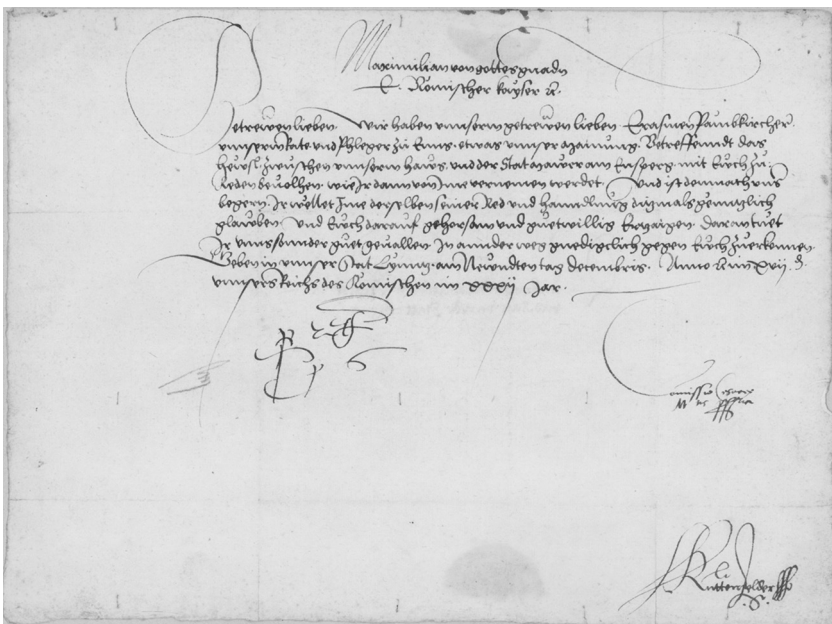 Maximilian von gottes gnadn
E. Römischer kayser etc.
Getrewen lieben. Wir haben unserm getrewen lieben Erasmen
unserm Rate und Phleger zu Enns. etwas unser maynung. Betreffenndt das
zwischen unserm hawß und der Statmawr am Ennsperg. mit Euch zu
Reden bevolhen. wie Ir dann von Ime vernemen werdet. Und ist demnach unns
begern. Ir wellet Ime derselben seiner Red und hanndlung ditzmals genntzlich
glauben. Und Euch darauf gehorsam und guetwillig Ertzaigen. daran tuet
Ir unns sonnder guet gevallen In annder weg gnedigclich gegen Euch zuerkennen.
Geben in unser Stat Lynntz. am Newndten tag decembris. Anno etc. im xvij.
unsers Reichs des Römischen im xxxij Jar.
Comissio